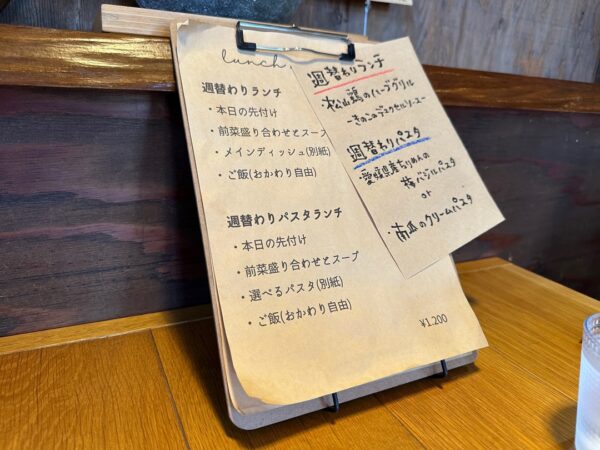 lunch
週替わりランチ
・本日の先付け
・前菜盛り合わせとスープ
・メインディッシュ(別紙)
・ご飯(おかわり自由)
週替わりパスタランチ
・本日の先付け
・前菜盛り合わせとスープ
・選べるパスタ(別紙)
・ご飯(おかわり自由)
¥1,200
週替わりランチ
・松山鶏のハーブグリル
-きのこのデュクセルソース-
週替わりパスタ
・愛媛県産ちりめんの
梅バジルパスタ
or
・南瓜のクリームパスタ